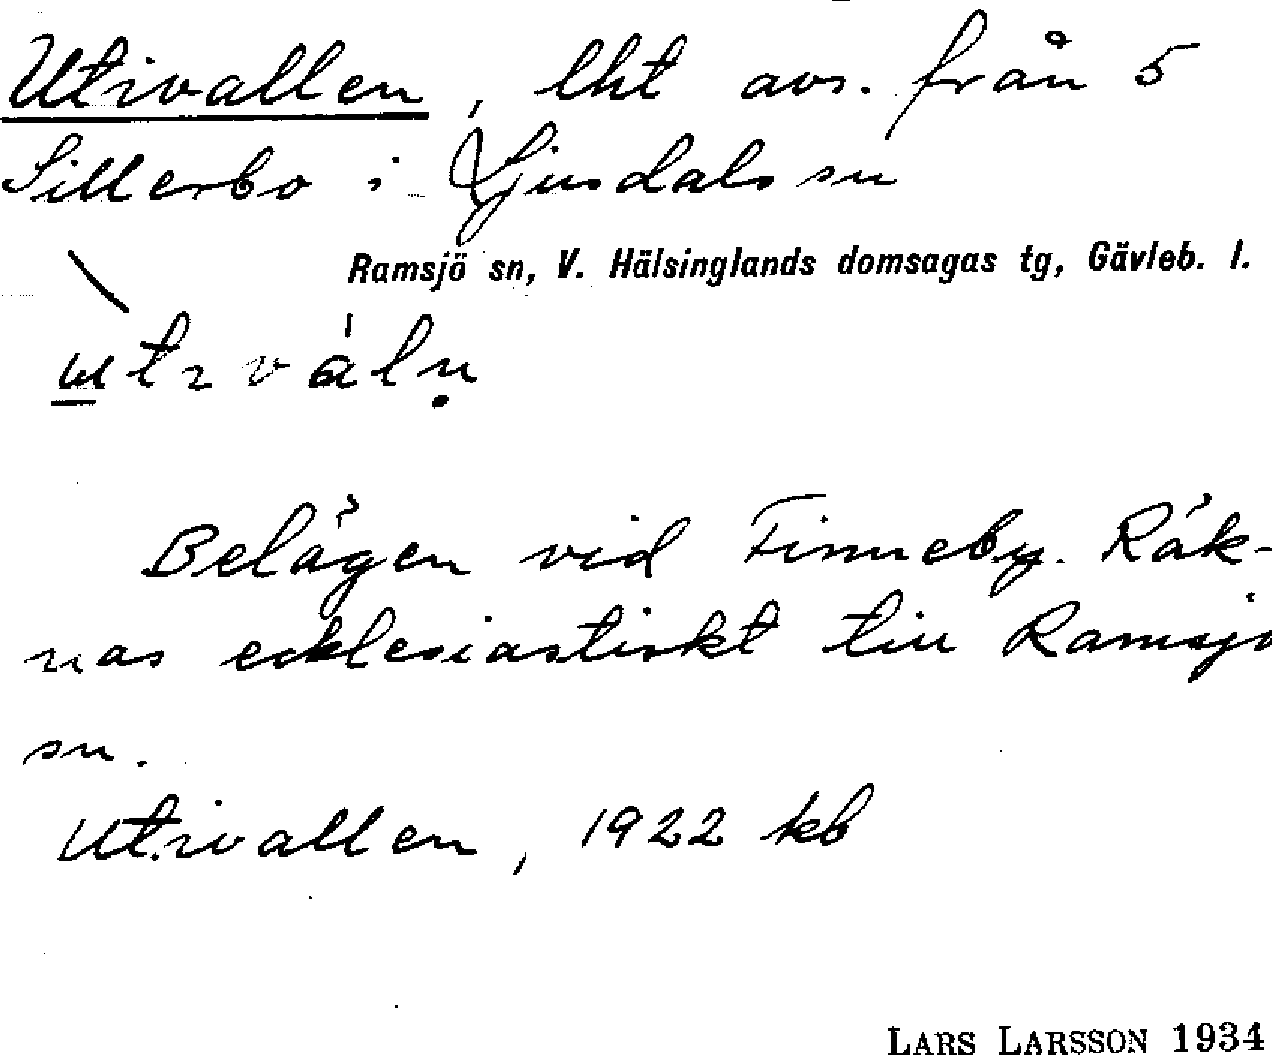 Utivallen, lht avs. från 5
Sillerbo i Ljusdals sn
Ramsjö sn, V. Hälsinglands domsagas tg, Gävleb. l.
Belägen vid Finneby. Räk-
nas ecklesiastiskt till Ramsjö
sn.
Utivallen, 1922 kb
LARS LARSSON 1934